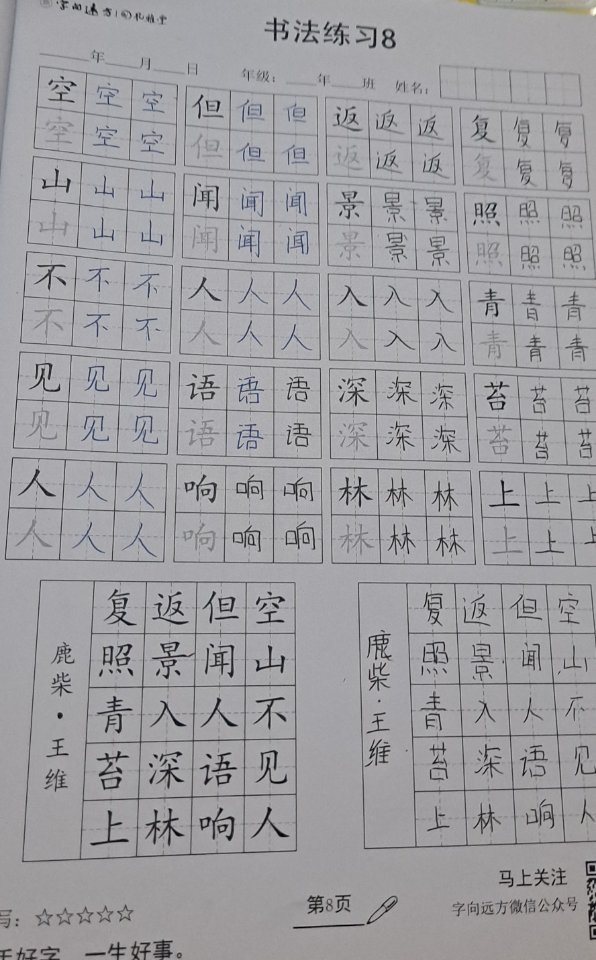 书法练习8
年 月 日 年级： 年 班 姓名：
空 空 空 但 但 但 返 返 返 复 复 复
空 空 空 但 但 但 返 返 返 复 复 复
山 山 山 闻 闻 闻 景 景 景 照 照 照
山 山 山 闻 闻 闻 景 景 景 照 照 照
不 不 不 人 人 人 入 入 入 青 青 青
不 不 不 人 人 人 入 入 入 青 青 青
见 见 见 语 语 语 深 深 深 苔 苔 苔
见 见 见 语 语 语 深 深 深 苔 苔 苔
人 人 人 响 响 响 林 林 林 上 上 上
人 人 人 响 响 响 林 林 林 上 上 上
鹿柴·王维
空山不见人
但闻人语响
返景入深林
复照青苔上
鹿柴·王维
空山不见人
但闻人语响
返景入深林
复照青苔上
马上关注
字向远方微信公众号
写：☆☆☆☆☆
第8页
好字，一生好事。